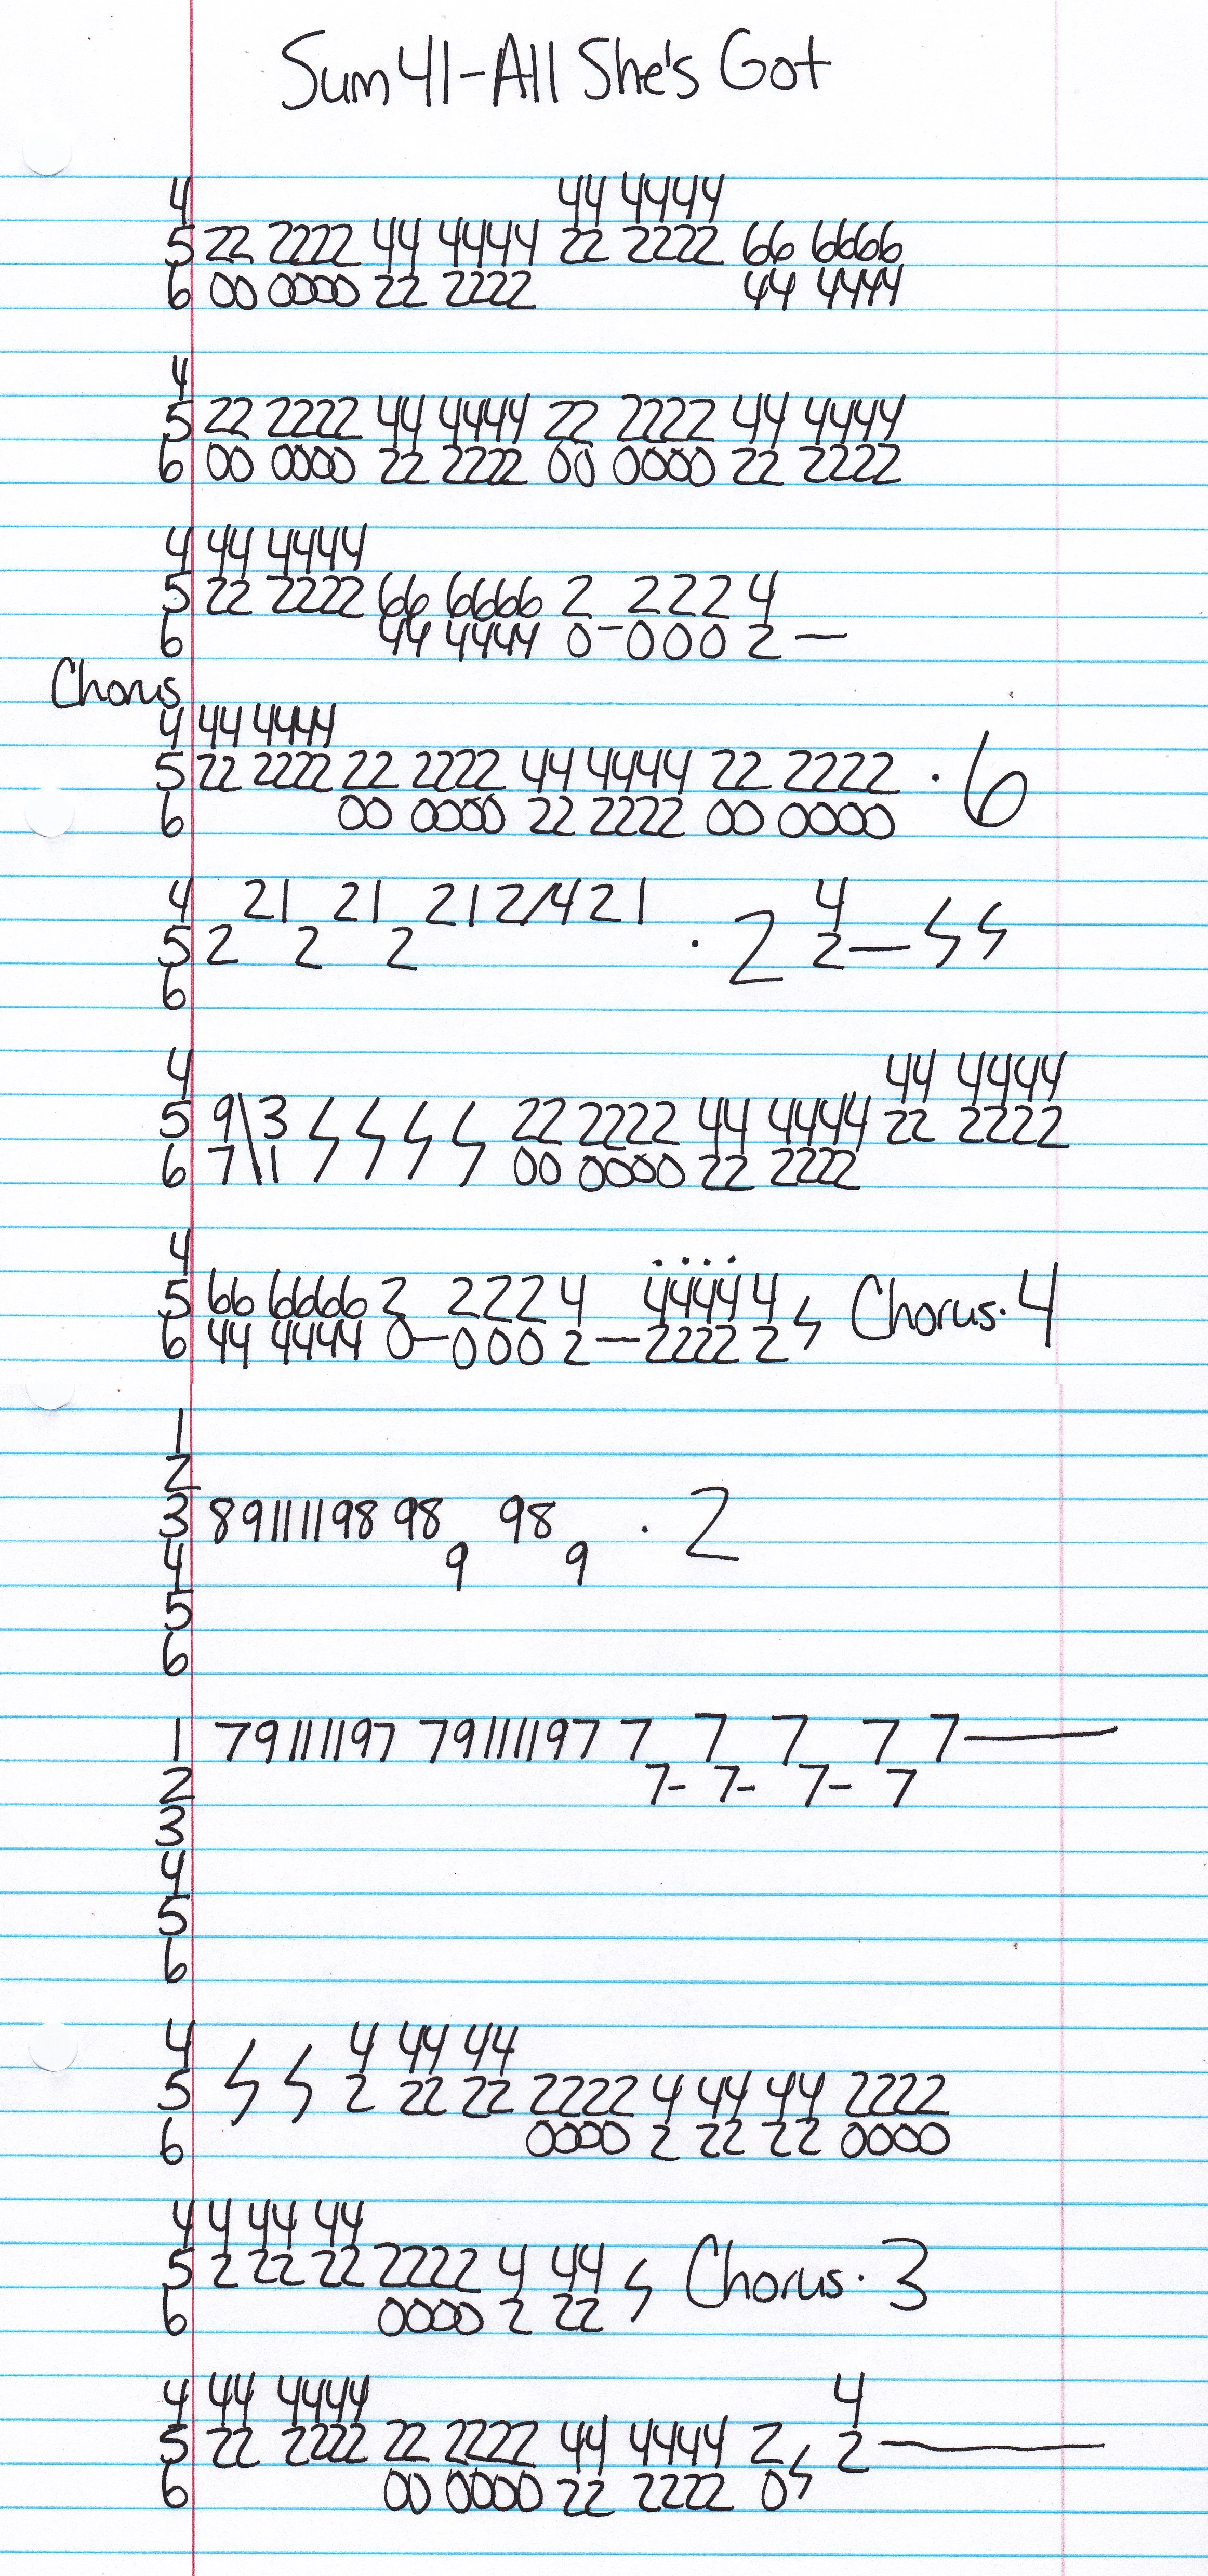 Sum 41-All She's Got
4 44 4444
5 22 2222 44 4444 22 2222 66 6666
6 00 0000 22 2222 44 4444
4
5 22 2222 44 4444 22 2222 44 4444
6 00 0000 22 2222 00 0000 22 2222
4 44 4444
5 22 2222 66 6666 2 222 4
6 44 4444 0-000 2—
Chorus
4 44 4444
5 22 2222 22 2222 44 4444 22 2222 · 6
6 00 0000 22 2222 00 0000
4 21 21 212/421 4
5 2 2 2 · 2 2—
6
4 44 4444
5 9\3 22 2222 44 4444 22 2222
6 7\1 00 0000 22 2222
4
5 66 6666 2 222 4 4444 4 Chorus · 4
6 44 4444 0—000 2—2222 2
1
2
3 89111198 98 98 · 2
4 9 9
5
6
1 79111197 79111197 7 7 7 7 7—
2 7- 7- 7- 7
3
4
5
6
4 4 44 44
5 2 22 22 2222 4 44 44 2222
6 0000 2 22 22 0000
4 4 44 44
5 2 22 22 2222 4 44 Chorus · 3
6 0000 2 22
4 44 4444 4
5 22 2222 22 2222 44 4444 2 2—
6 00 0000 22 2222 0